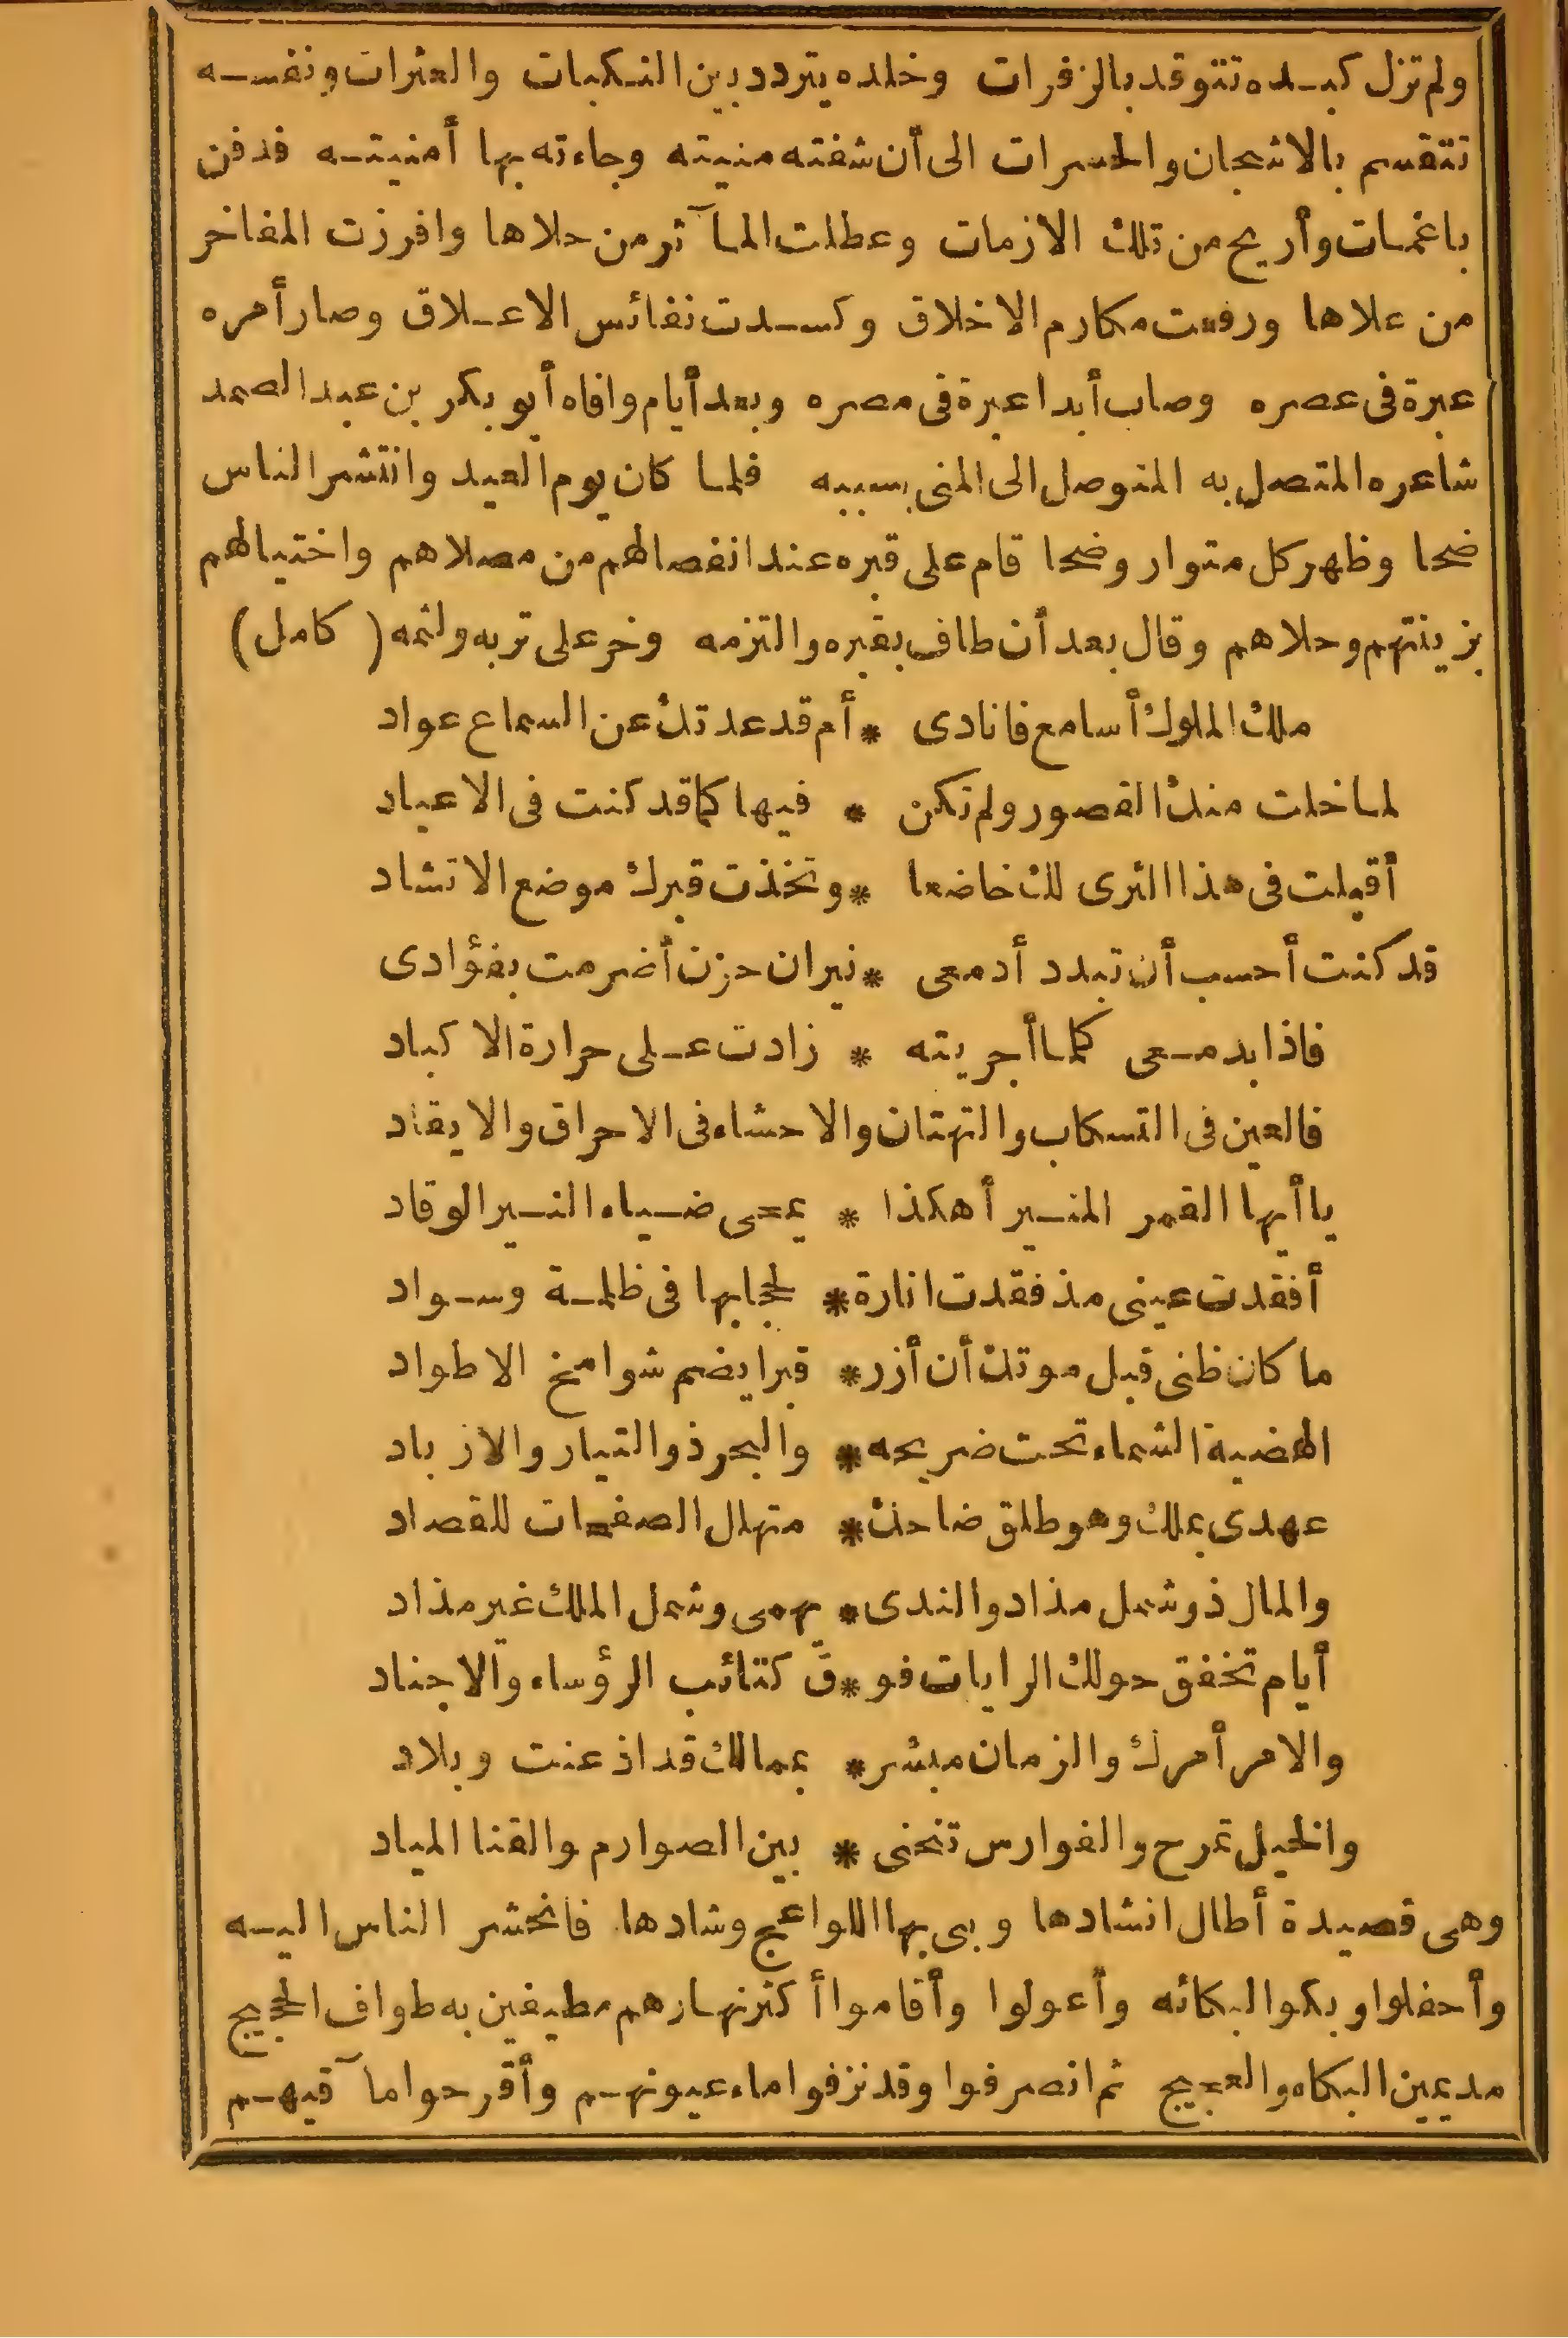 ولم تزل كبده تتوقد بالزفرات وخلده يتردد بين النكبات والعثرات ونفسه
تتقسم بالاشجان والحسرات الى أن شفته منيته وجاءته بها أمنيته فدفن
باغمات وأريح من تلك الازمات وعطلت المآثر من حلاها وافرزت المفاخر
من علاها ورفعت مكارم الاخلاق وكسدت نفائس الاعلاق وصار أمره
عبرة فى عصره وصاب أبدا عبرة فى مصره وبعد أيام وافاه أبو بكر بن عبد الصمد
شاعره المتصل به المتوصل الى المنى بسببه فلما كان يوم العيد وانتشر الناس
ضحا وظهر كل متوار وضحا قام على قبره عند انفصالهم من مصلاهم واختيالهم
بزينتهم وحلاهم وقال بعد أن طاف بقبره والتزمه وخر على تربه ولثمه (كامل)
ملك الملوك أسامع فانادى * أم قد عدتك عن السماع عواد
لما خلت منك القصور ولم تكن * فيها كما قد كنت فى الاعياد
أقبلت فى هذا الثرى لك خاضعا * وتخذت قبرك موضع الانشاد
قد كنت أحسب أن تبدد أدمعى * نيران حزن أضرمت بفؤادى
فاذا بدمعى كلما أجريته * زادت على حرارة الاكباد
فالعين فى التسكاب والتهتان والاحشاء فى الاحراق والايقاد
يا أيها القمر المنير أهكذا * يمحى ضياء النير الوقاد
أفقدت عينى مذ فقدت انارة * لحجابها فى ظلمة وسواد
ما كان ظنى قبل موتك أن أزر * قبرا يضم شوامخ الاطواد
الهضبة الشماء تحت ضريحه * والبحر ذو التيار والازباد
عهدى بملك وهو طلق ضاحك * متهلل الصفحات للقصاد
والمال ذو شمل مذاد والندى * يهمى وشمل الملك غير مذاد
أيام تخفق حولك الرايات فو * ق كتائب الرؤساء والاجناد
والامر أمرك والزمان مبشر * بممالك قد اذعنت وبلاد
والخيل تمرح والفوارس تنحنى * بين الصوارم والقنا المياد
وهى قصيدة أطال انشادها وبى بها اللواعج وشادها فانحشر الناس اليه
وأحفلوا وبكوا لبكائه وأعولوا وأقاموا أكثر نهارهم مطيفين به طواف الحجيج
مديمين البكاء والعجيج ثم انصرفوا وقد نزفوا ماء عيونهم وأقرحوا مآقيهم